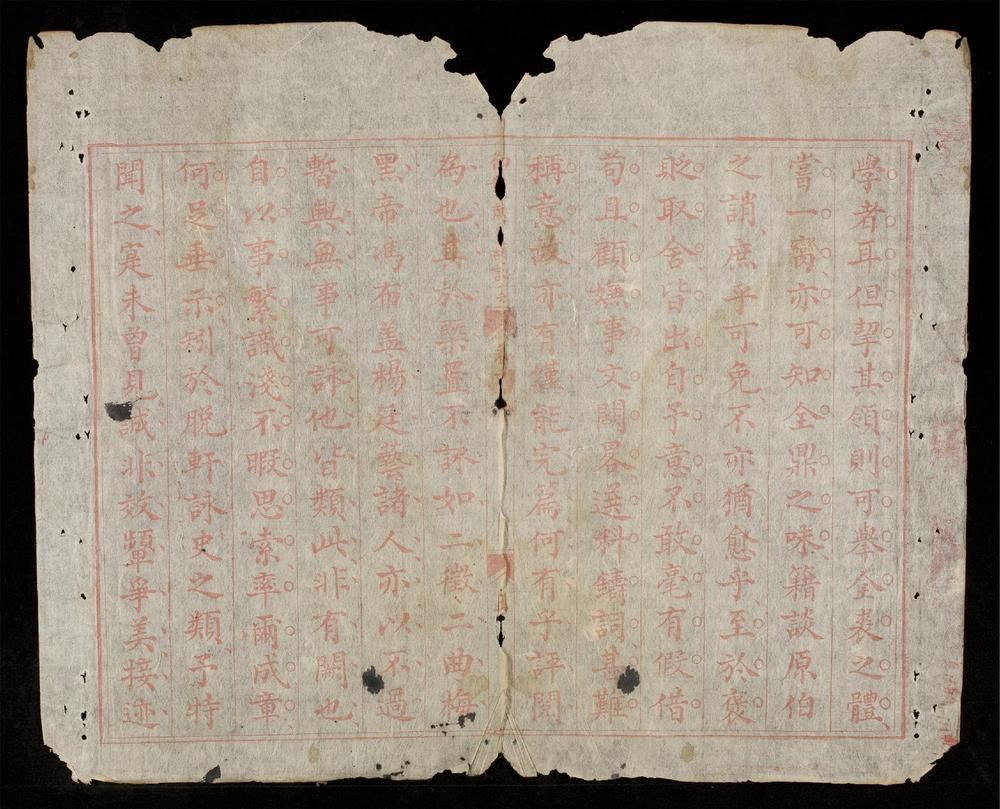 學者耳但挈其領則可舉全裘之體
嘗一臠亦可知全鼎之味籍談原伯
之誚庶乎可免不亦猶愈乎至於褒
貶取舍皆出自予意不敢毫有假借
苟且顧嫵事文闊畧選料鑄詞甚難
稱意故亦有僅能完篇何有乎評閱
為也其於槩置不詠如二徵二曲梅
黑帝馮布蓋楊廷藝諸人亦以不過
暫興無事可詠他皆類此非有闕也
自以事繁識淺不暇思索率爾成章
何足垂示矧於脫軒詠史之類予特
聞之寔未曾見誠非效顰爭美接迹